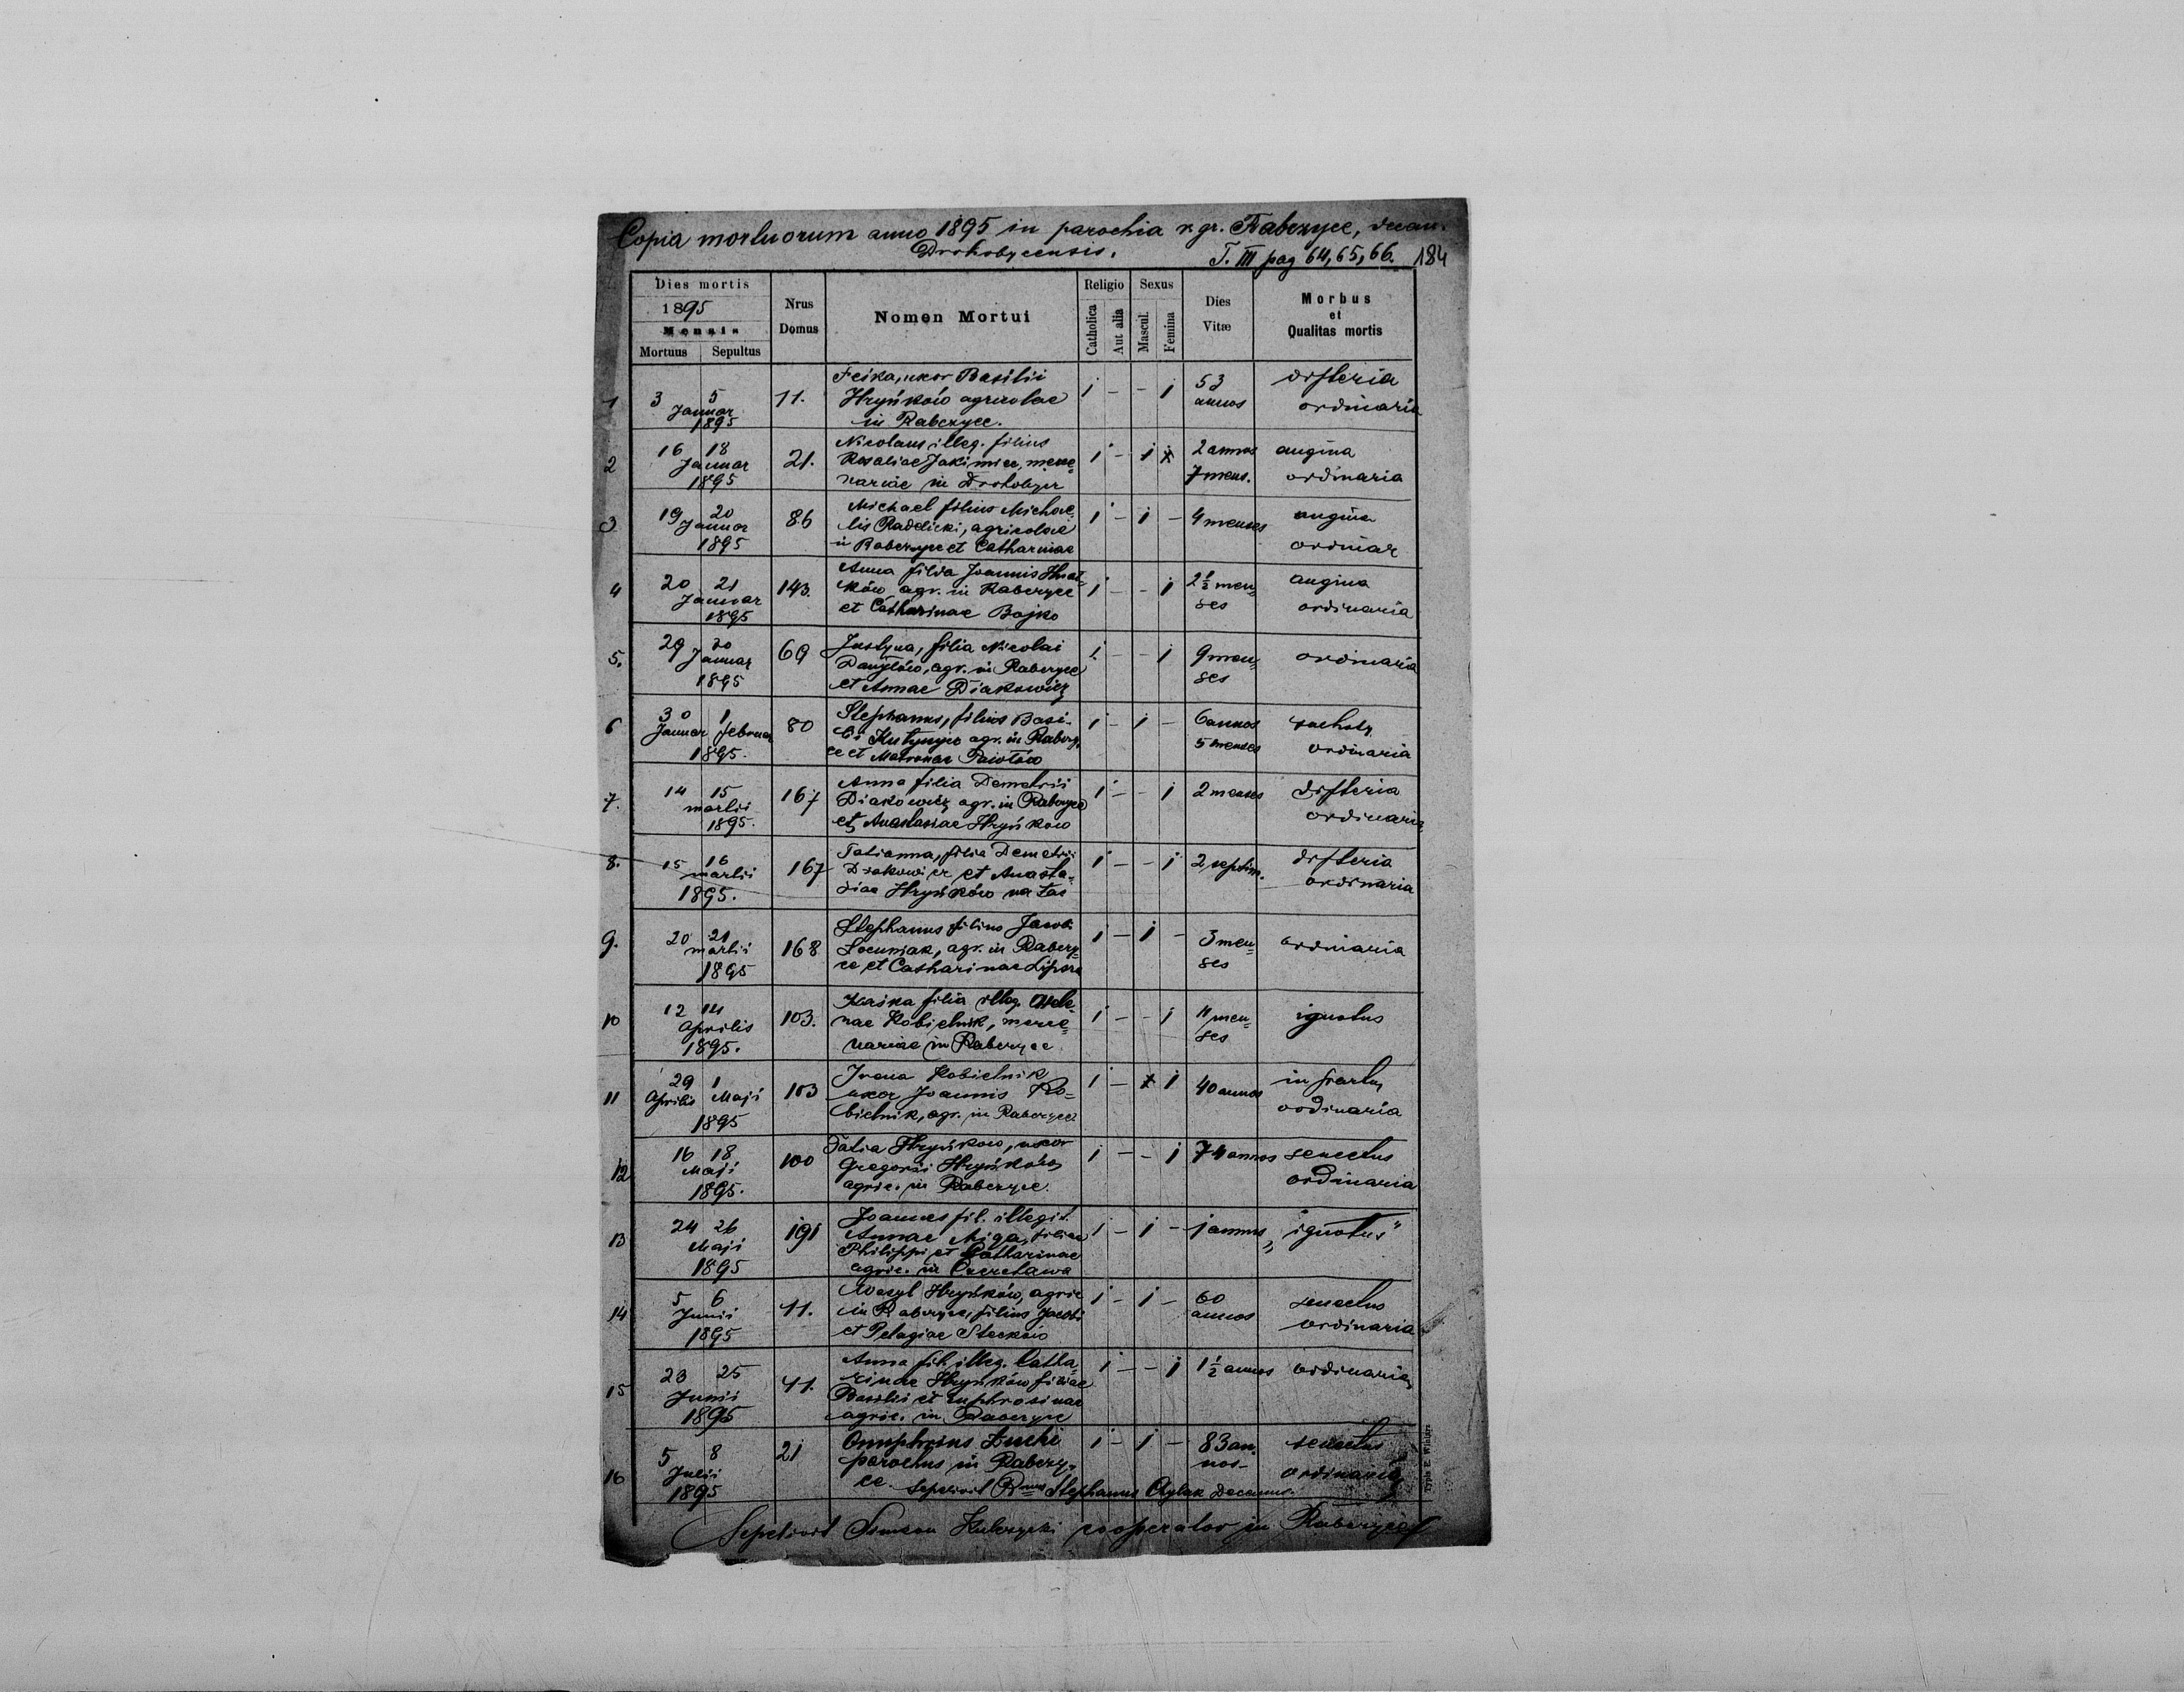 Copia mortuorum anno 1895 in parochia r. gr. Rabczyce, decan.
Drohobycensis. T. III pag 64, 65, 66. 184
Dies mortis
1895
Mensis
Mortuus Sepultus
Nrus
Domus
Nomen Mortui
Religio
Catholica
Aut alia
Sexus
Mascul.
Femina
Dies
Vitæ
Morbus
et
Qualitas mortis
1 3 5 11. Feska, uxor Basilii 1 - - 1 53 difteria
Januar Hryńków agricolae annos ordinaria
1895 in Rabczyce.
2 16 18 21. Nicolaus illeg. filius 1 - 1 x 2 annos angina
Januar Rosaliae Jakimiec, merce= 7 mens. ordinaria
1895 nariae in Drohobycz
3 19 20 86 Michael filius Michae- 1 - 1 - 4 menses angina
Januar lis Radelicki, agricolae ordinar
1895 in Rabczyce et Catharinae
4 20 21 143. Anna filia Joannis Hnat- 1 - - 1 2½ men= angina
Januar ków, agr. in Rabczyce ses ordinaria
1895 et Catharinae Bojko
5. 29 30 69 Justyna, filia Nicolai 1 - - 1 9 men= ordinaria
Januar Danyłów, agr. in Rabczyce ses
1895 et Annae Diakowicz
6 30 1 80 Stephanus, filius Basi- 1 - 1 - 6 annos suchoty
Januar februar agr. in Rabczy 5 menses ordinaria
1895. ce et Matronae
7. 14 15 167 Anna filia Demetrii 1 - - 1 2 menses difteria
martii Diakowicz agr. in Rabczyce ordinaria
1895. et Anastasiae Hryńków
8. 15 16 167 Tatianna, filia Demetrii 1 - - 1 2 septim. difteria
martii Diakowicz et Anasta= ordinaria
1895. siae Hryńków
9. 20 21 168 Stephanus filius Jacobi 1 - 1 - 3 men= ordinaria
martii agr. in Rabczy= ses
1895 ce et Catharinae
10 12 14 103. Kaśka filia illeg. Hele- 1 - - 1 11 men= ignotus
Aprilis nae Kobielnik, merce= ses
1895. nariae in Rabczyce
11 29 1 103 Kobielnik 1 - x 1 40 annos in partu
Aprilis Maji uxor Joannis Ko= ordinaria
1895 bielnik, agr. in Rabczyce
12 16 18 100 Hryńków, uxor 1 - - 1 74 annos senectus
Maji Gregorii Hryńków, ordinaria
1895. agric. in Rabczyce.
13 24 26 191 Joannes fil. illegit. 1 - 1 - 1 annus „ignotus"
Maji Annae Miga, filiae
1895 Philippi et Catharinae
agric. in
14 5 6 11. Wasyl Hryńków, agric 1 - 1 - 60 senectus
Junii in Rabczyce, filius Jacobi annos ordinaria
1895 et Pelagiae Steckow
15 23 25 41. Anna fil. illeg. Catha= 1 - - 1 1½ annos ordinaria
Junii rinae Hryńków filiae
1895 Basilii et Euphrosinae
agric. in Rabczyce
16 5 8 21 Onuphrius 1 - 1 - 83 an. senectus
Julii parochus in Rabczy= nos - ordinaria
1895 ce. Sepelivit Rmus Stephanus Decanus.
Sepelivit Simeon cooperator in Rabczyce
Typis E. Winiarz